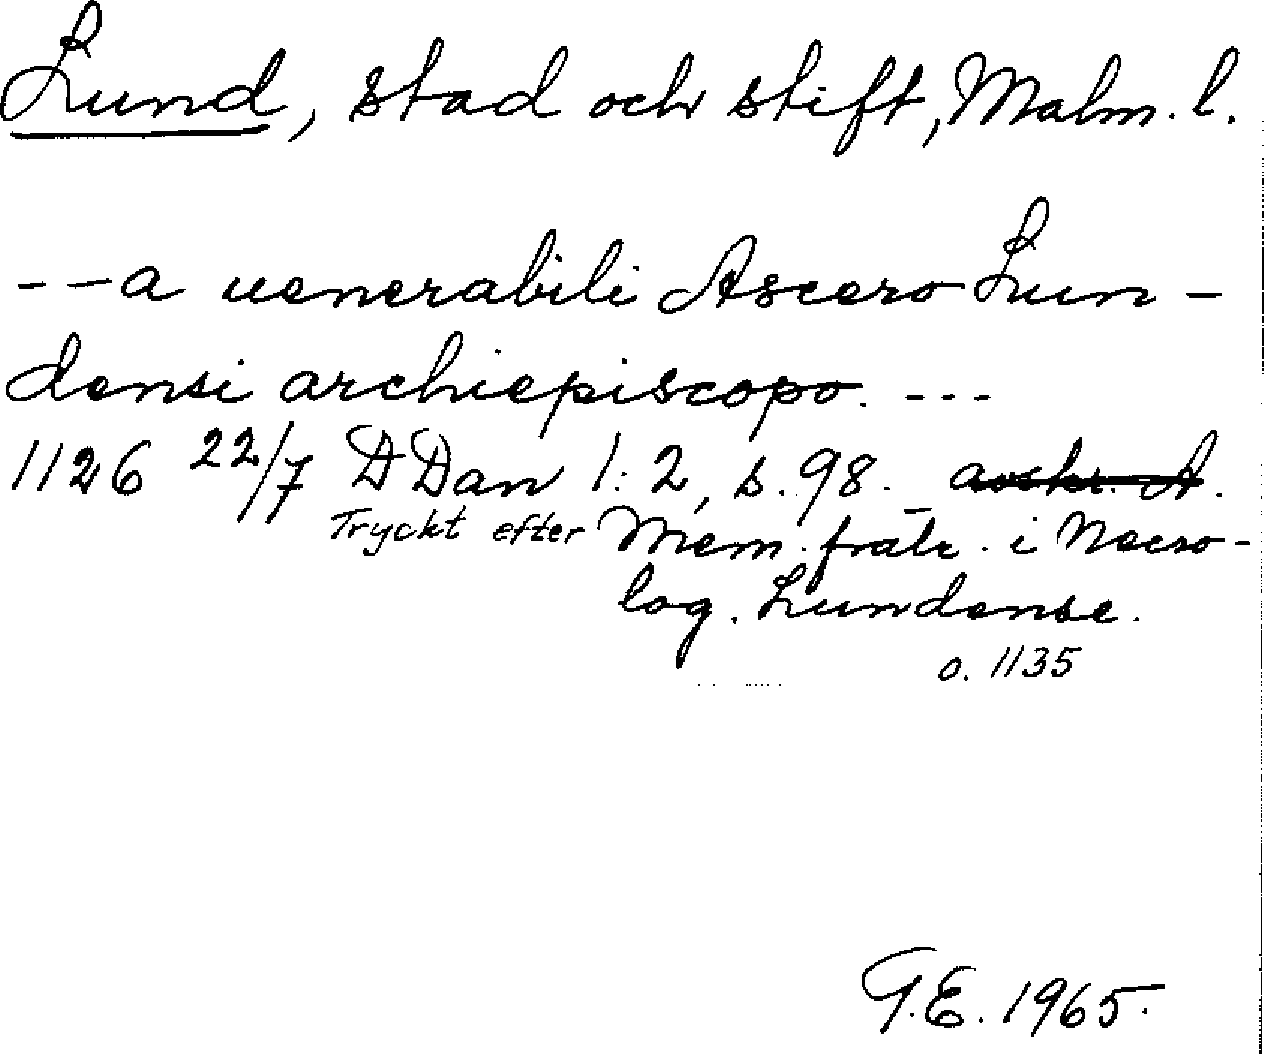 Lund, stad och stift, Malm. l.
-- a uenerabili Ascero Lun-
densi archiepiscopo. ---
1126 22/7 DDan 1:2, s. 98. avskr. A.
Tryckt efter Mem. fratr. i Necro-
log. Lundense.
o. 1135
G.E. 1965.